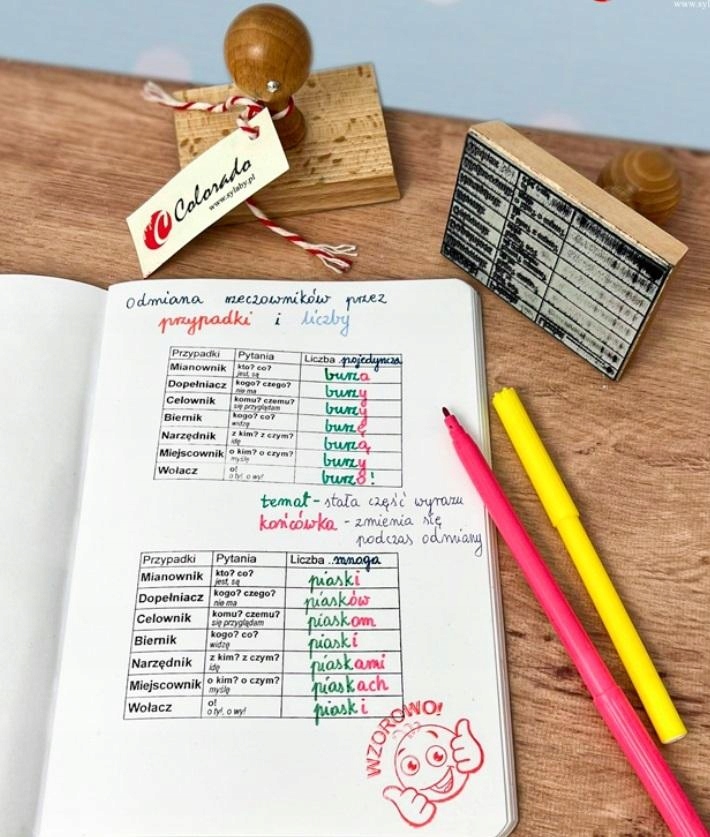 Colorado
www.sylaby.pl
odmiana rzeczowników przez
przypadki i liczby
Przypadki Pytania Liczba pojedyncza
Mianownik kto? co? jest, są burza
Dopełniacz kogo? czego? nie ma burzy
Celownik komu? czemu? się przyglądam burzy
Biernik kogo? co? widzę burzę
Narzędnik z kim? z czym? idę burzą
Miejscownik o kim? o czym? myślę burzy
Wołacz o! o ty!, o wy! burzo!
temat - stała część wyrazu
końcówka - zmienia się
podczas odmiany
Przypadki Pytania Liczba ..mnoga
Mianownik kto? co? jest, są piaski
Dopełniacz kogo? czego? nie ma piasków
Celownik komu? czemu? się przyglądam piaskom
Biernik kogo? co? widzę piaski
Narzędnik z kim? z czym? idę piaskami
Miejscownik o kim? o czym? myślę piaskach
Wołacz o! o ty!, o wy! piaski
WZOROWO!